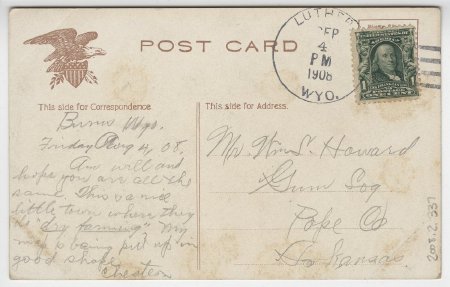 POST CARD
LUTHER
SEP
4
PM
1908
WYO.
1
This side for Correspondence.
This side for Address.
Burns Wyo.
Friday 4, 08.
Am well and
hope you are all the
same. This is a nice
little town where they
"Dry farming" My
is being put up in
good shape.
Mr. Wm. S. Howard
Gum Log
Pope Co
Arkansas
2008.2.337